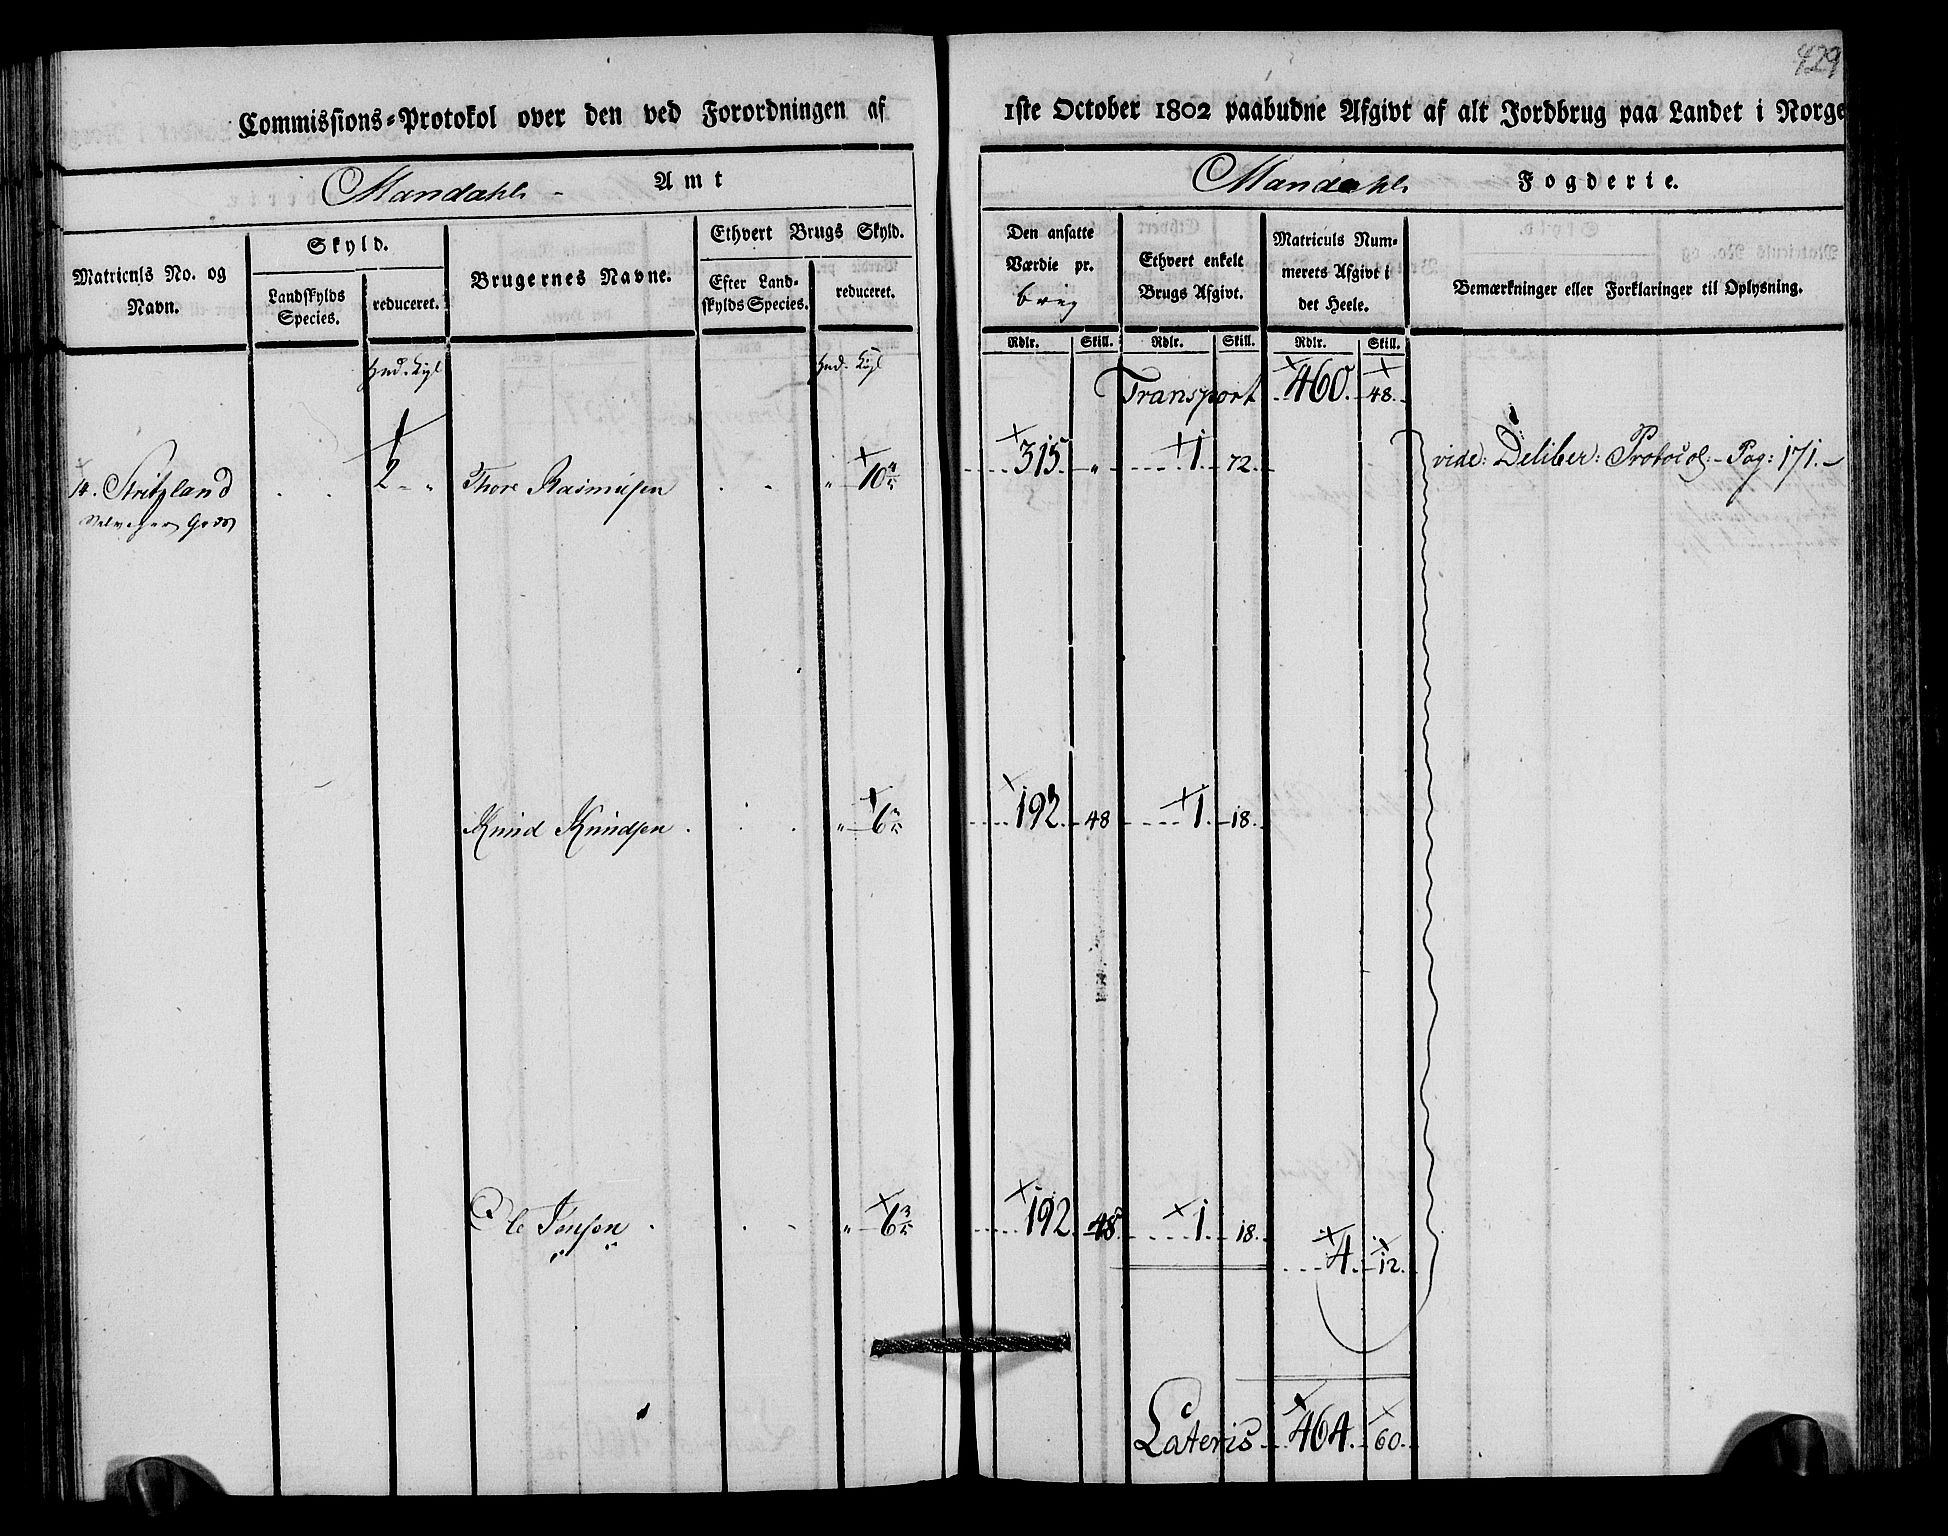 429
Commissions-Protokol over den ved Forordningen af 1ste October 1802 paabudne Afgivt af alt Jordbrug paa Landet i Norge
Mandahls Amt
Mandahls Fogderie.
Matriculs No. og Navn.
Skyld.
Landskylds Species.
reduceret.
Brugernes Navne.
Ethvert Brugs Skyld.
Efter Landskylds Species.
reduceret.
Den ansatte Værdie pr.
Ethvert enkelt Brugs Afgivt.
Matriculs Nummerets Afgivt i det Heele.
Bemærkninger eller Forklaringer til Oplysning.
Rdlr. Skill. Rdlr. Skill. Rdlr. Skill.
Transport 460. 48.
Stritzland 2 - " Thore Rasmusen " 10 315 " 1 72. vide: Deliber: Protocol - Pag: 171. -
Knud Knudsen " 6 192. 48 1. 18.
Ole Jensen " 6 192. 48. 1. 18. 4. 12.
Lateris 464. 60.